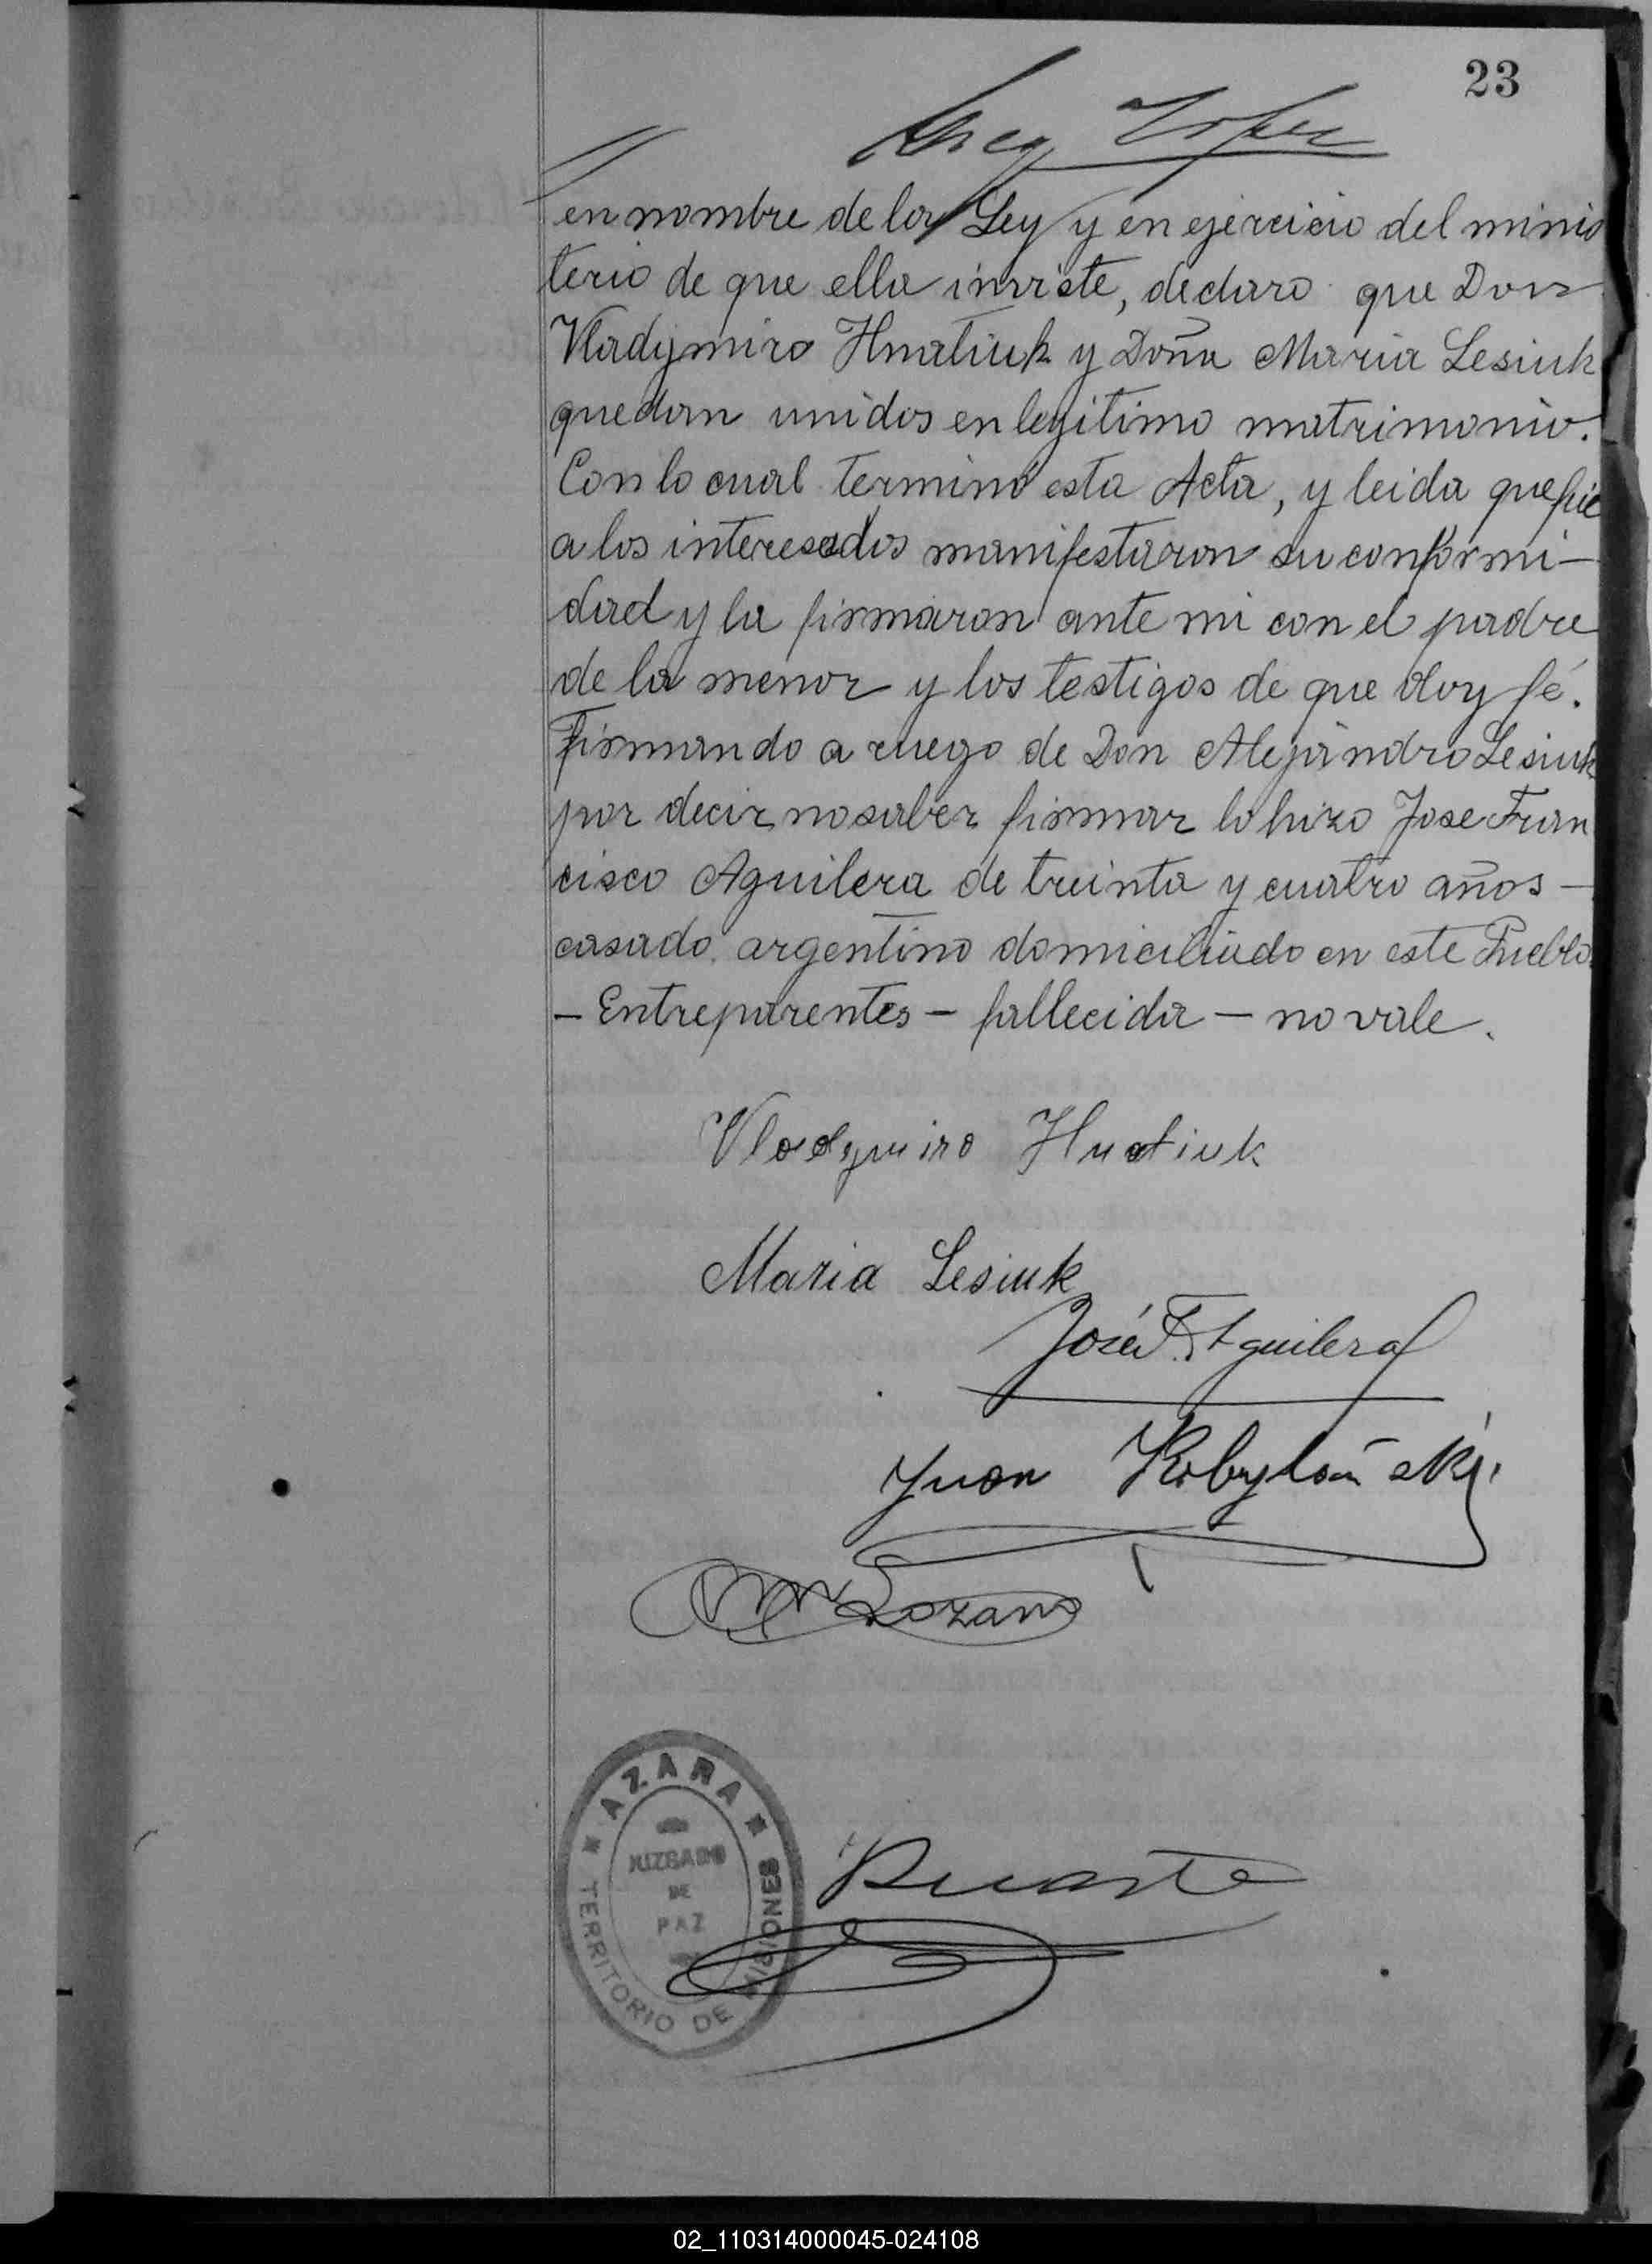 23
en nombre de la Ley y en ejercicio del minis
terio de que ella inviste, declaro que Don
Vladymiro Hnatiuk y Doña Maria Lesiuk
quedan unidos en legitimo matrimonio.
Con lo cual terminó esta Acta, y leida que fué
a los interesados manifestaron su conformi-
dad y la firmaron ante mi con el padre
de la menor y los testigos de que doy fé.
Firmando a ruego de Don Alejandro Lesiuk
por decir no saber firmar lo hizo Jose Fran
cisco Aguilera de treinta y cuatro años —
casado argentino domiciliado en este Pueblo.
— Entreparentes — fallecida — no vale.
Vladymiro Hnatiuk
Maria Lesiuk
José F. Aguilera
Juan Kobylañski
Lozano
AZARA
JUZGADO
DE
PAZ
TERRITORIO DE MISIONES
Duarte
02_110314000045-024108